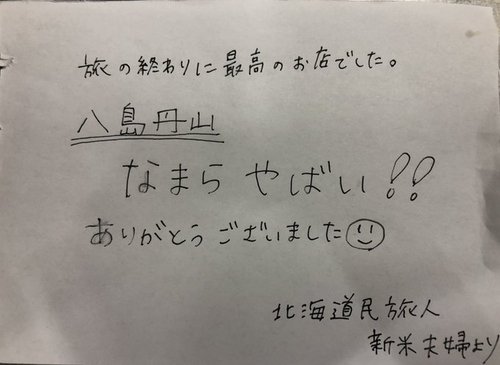 旅の終わりに最高のお店でした。
八島丹山
なまら やばい!!
ありがとうございました☺
北海道民旅人
新米夫婦より